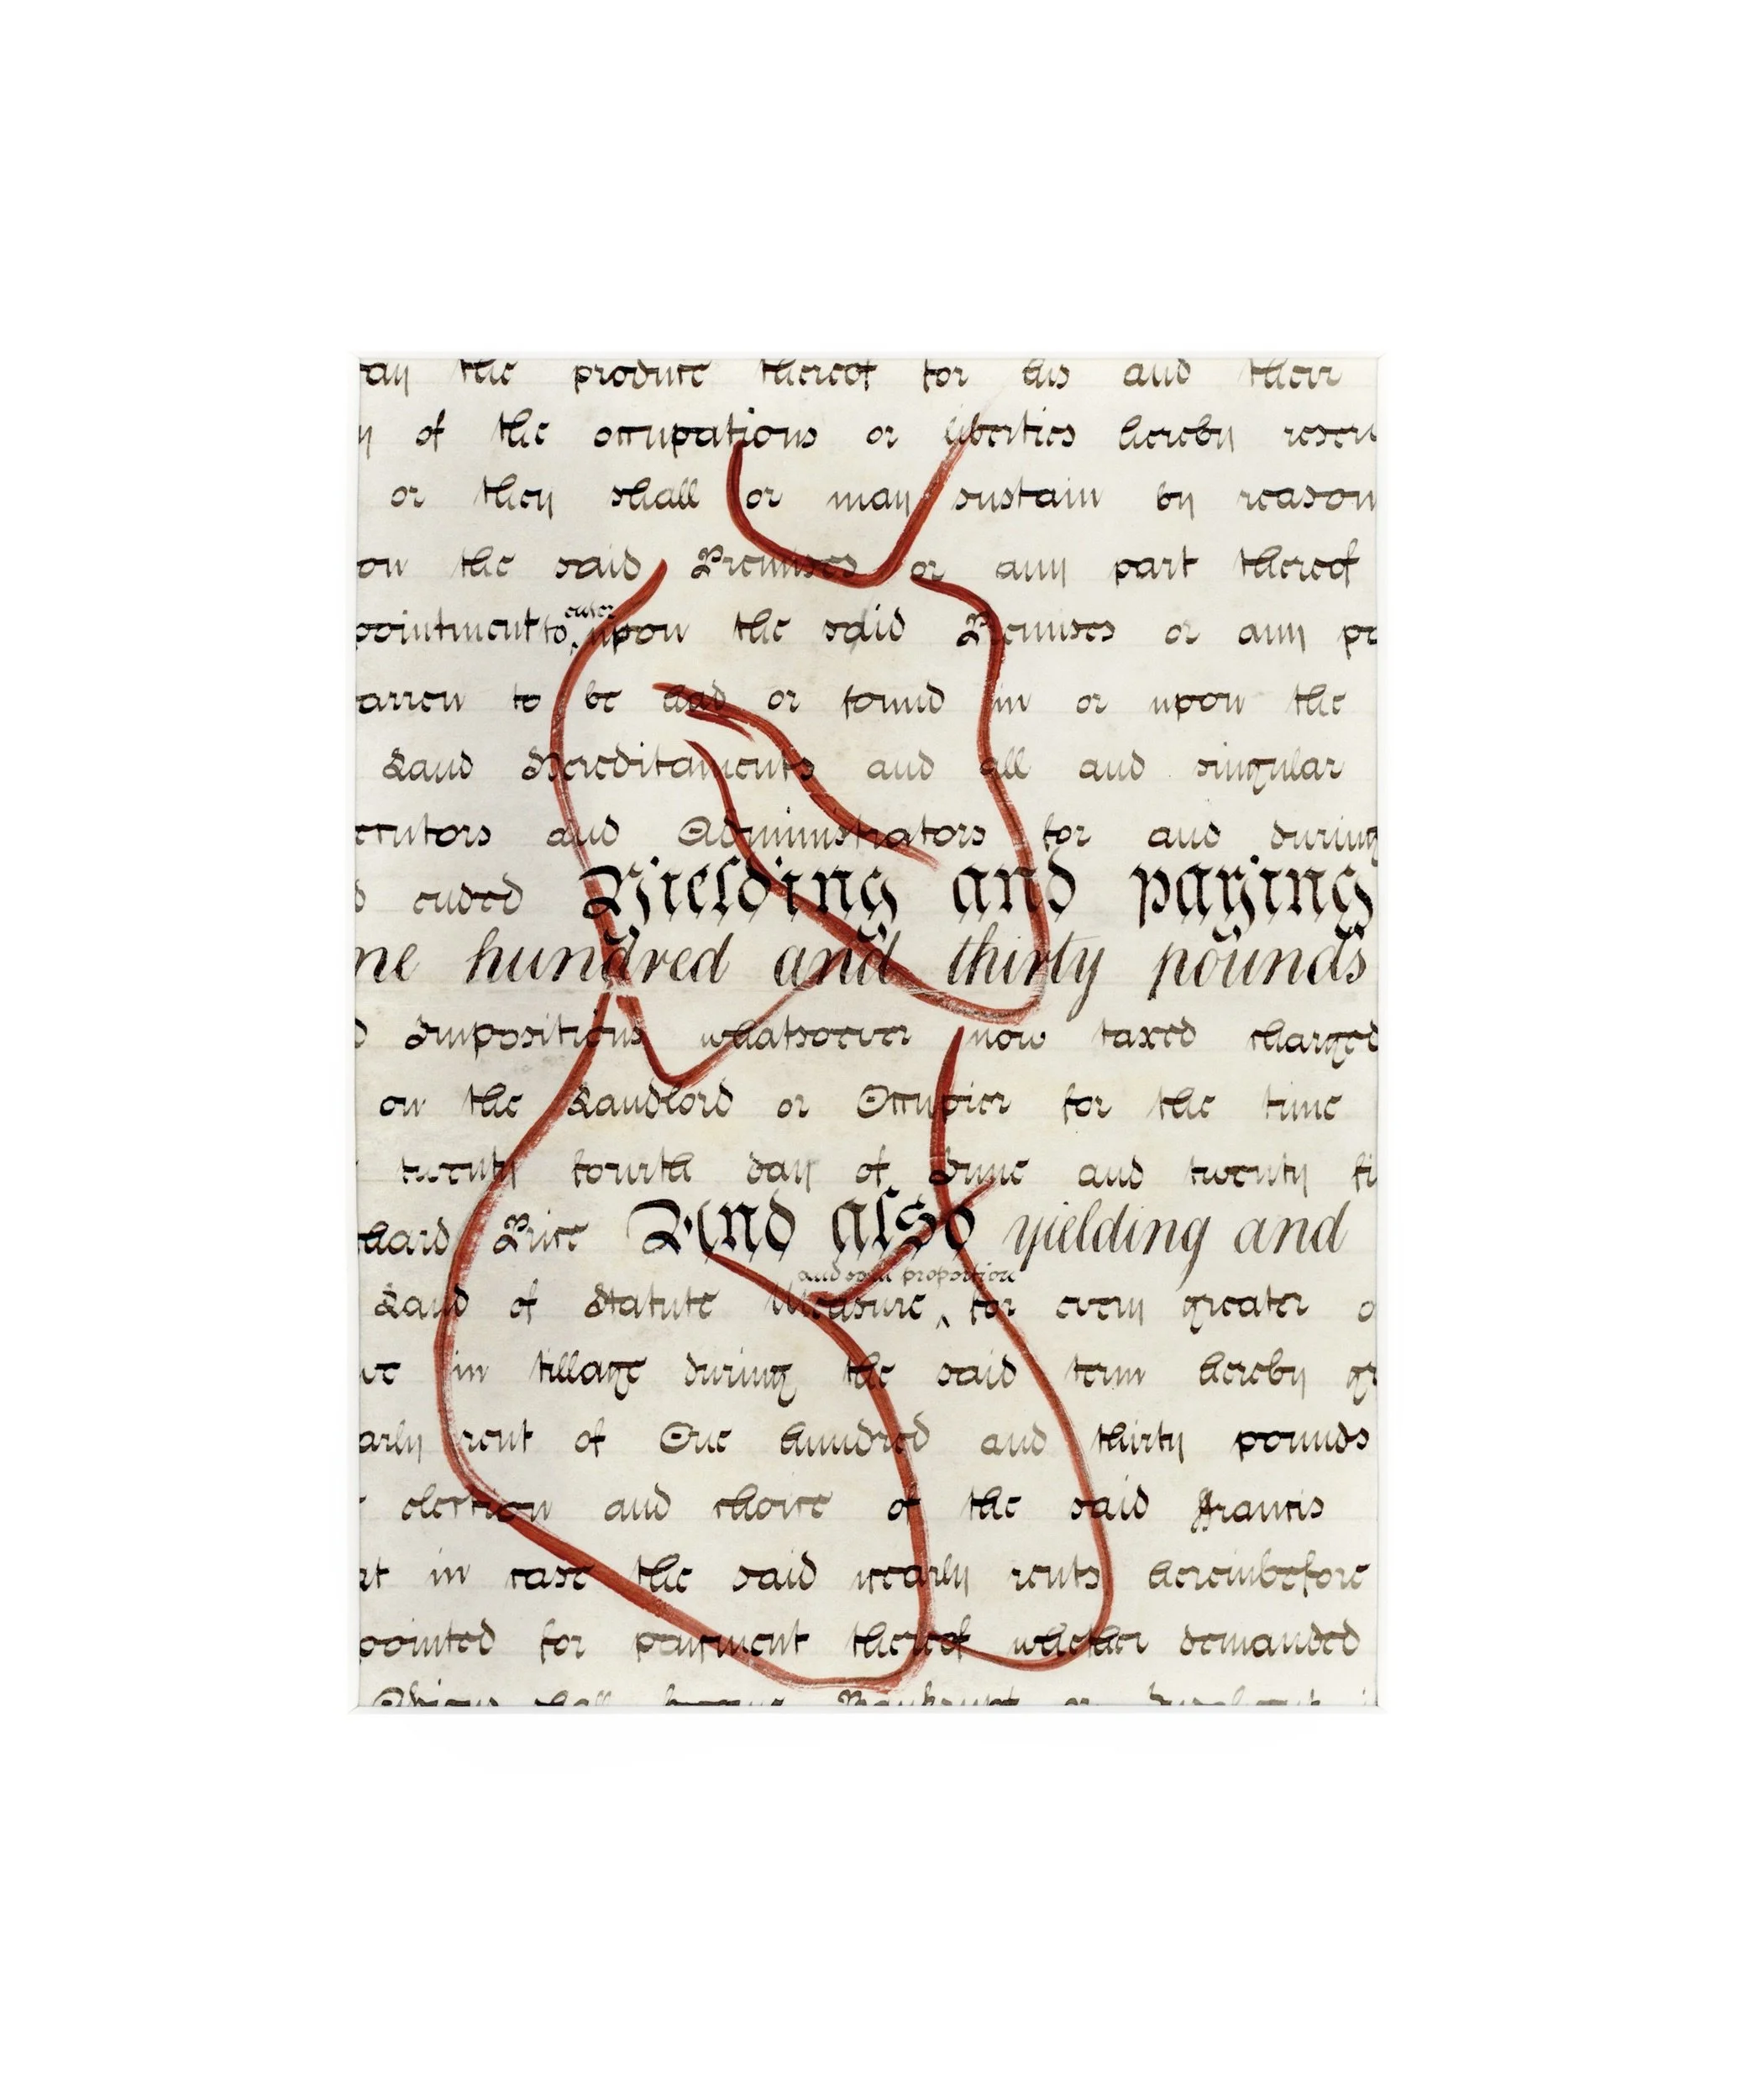 ay the produce thereof for his and their
y of the occupations or liberties hereby reserv
or they shall or may sustain by reason
on the said Premises or any part thereof
enter
pointment to upon the said Premises or any pa
arren to be had or found in or upon the
Land Hereditaments and all and singular
ecutors and Administrators for and during
d ended Yielding and paying
ne hundred and thirty pounds
d Impositions whatsoever now taxed charged
on the Landlord or Occupier for the time
twenty fourth day of June and twenty fi
hard Price And also yielding and
and so in proportion
Land of Statute Measure ‸ for every greater o
ve in tillage during the said term hereby gr
arly rent of One hundred and thirty pounds
election and choice of the said Francis
at in case the said yearly rents hereinbefore
pointed for payment thereof whether demanded
shall become Bankrupt or Insolvent